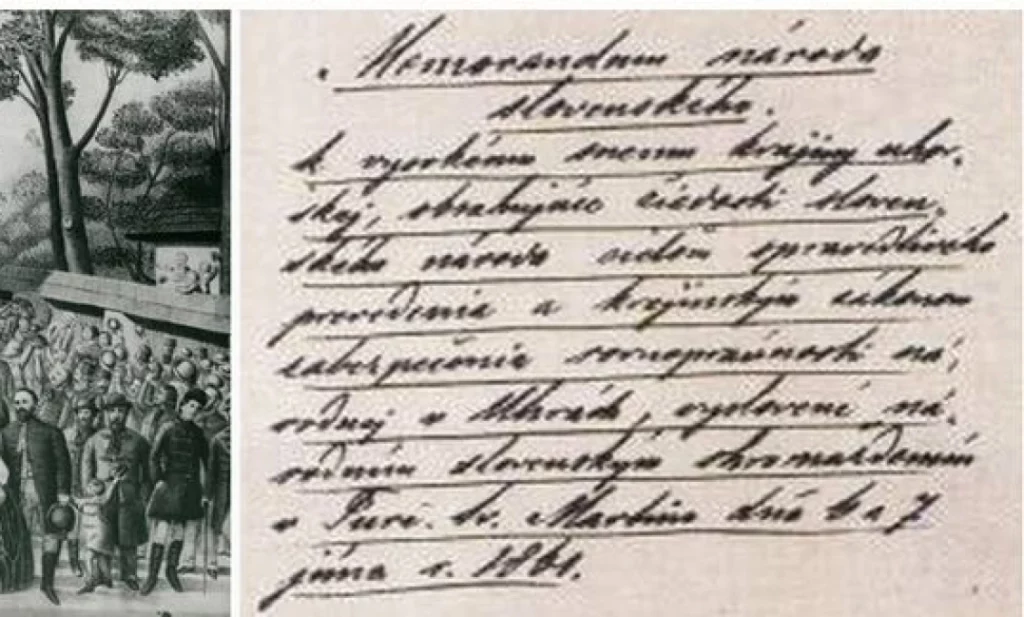 Memorandum národa
slovenského.
k vysokému snemu krajiny uhor-
skej, obsahujúce žiadosti sloven-
ského národa cieľom spravedlivého
prevedenia a krajinským zákonom
zabezpečenia rovnoprávnosti ná-
rodnej v Uhrách, vyslovené ná-
rodním slovenským shromaždením
v Turč. Sv. Martine dňa 6 a 7
júna r. 1861.